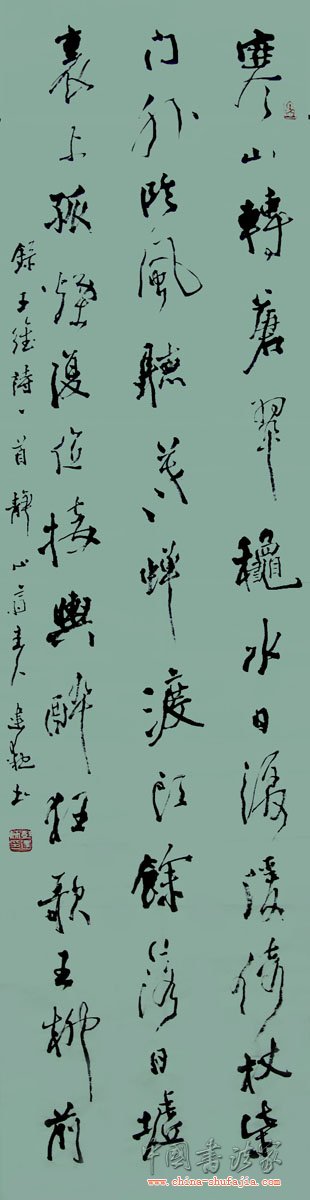 寒山轉蒼翠龝水日潺湲倚杖柴
門外臨風聽暮蟬渡頭餘落日墟
裏上孤煙復值接輿醉狂歌五柳前
錄王維詩一首靜心齋主人建書
中國書法家
www.china-shufajia.com